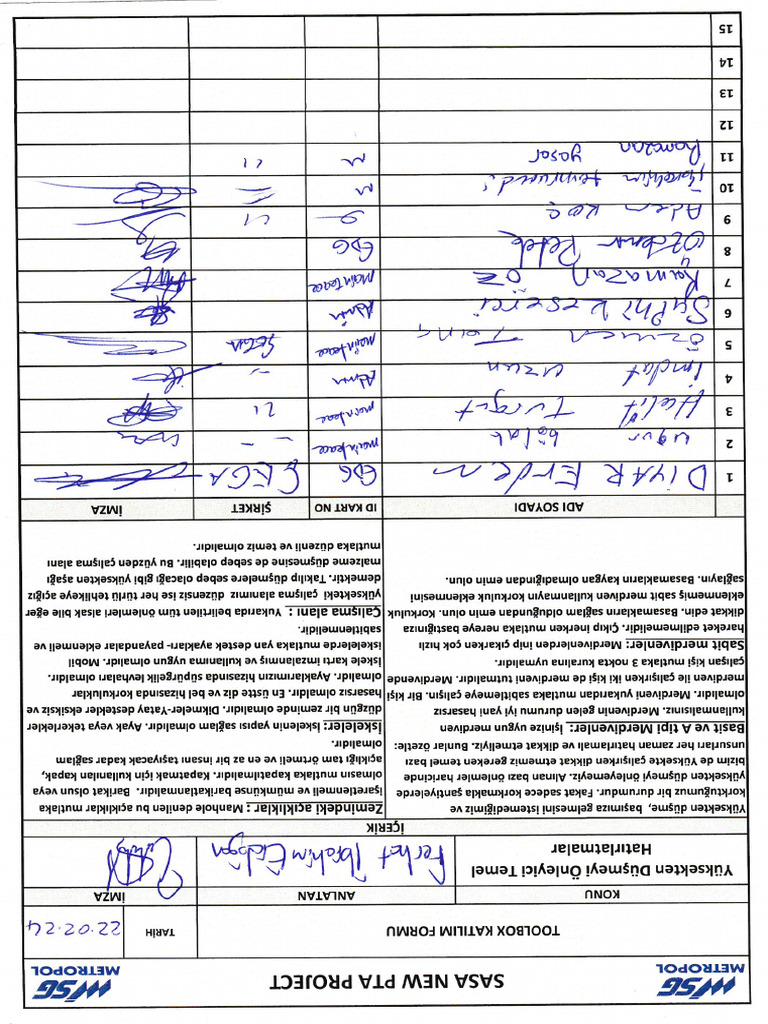 WSG METROPOL
SASA NEW PTA PROJECT
WSG METROPOL
TOOLBOX KATILIM FORMU
TARİH
22.02.24
KONU
ANLATAN
İMZA
Yüksekten Düşmeyi Önleyici Temel
Hatırlatmalar
Ferhat İbrahim Erdoğan
İÇERİK
Yüksekten düşme, başımıza gelmesini istemediğimiz ve
korktuğumuz bir durumdur. Fakat sadece korkmakla şantiyelerde
yüksekten düşmeyi önleyemeyiz. Alınan bazı önlemler haricinde
bizim de Yüksekte çalışırken dikkat etmemiz gereken temel bazı
unsurları her zaman hatırlamalı ve dikkat etmeliyiz. Bunlar özetle:
Basit ve A tipi Merdivenler: İşinize uygun merdiven
kullanmalısınız. Merdivenin gelen durumu iyi yani hasarsız
olmalıdır. Merdiveni yukarıdan mutlaka sabitlemeye çalışın. Bir kişi
merdiven ile çalışırken iki kişi de merdiveni tutmalıdır. Merdivende
çalışan kişi mutlaka 3 nokta kuralına uymalıdır.
Sabit merdivenler: Merdivenlerden inip çıkarken çok hızlı
hareket edilmemelidir. Çıkıp inerken mutlaka nereye bastığınıza
dikkat edin. Basamakların sağlam olduğundan emin olun. Korkuluk
eklenmemiş sabit merdiven kullanmayın korkuluk eklenmesini
sağlayın. Basamakların kaygan olmadığından emin olun.
Zemindeki açıklıklar : Manhole denilen bu açıklıklar mutlaka
işaretlenmeli ve mümkünse barikatlanmalıdır. Barikat olsun veya
olmasın mutlaka kapatılmalıdır. Kapatmak için kullanılan kapak,
açıklığı tam örtmeli ve en az bir insanı taşıyacak kadar sağlam
olmalıdır.
İskeleler: İskelenin yapısı sağlam olmalıdır. Ayak veya tekerlekler
düzgün bir zeminde olmalıdır. Dikmeler-Yatay destekler eksiksiz ve
hasarsız olmalıdır. En üstte diz ve bel hizasında korkuluklar
olmalıdır. Ayaklarınızın hizasında süpürgelik levhaları olmalıdır.
İskele kartı imzalanmış ve kullanıma uygun olmalıdır. Mobil
iskelelerde mutlaka yan destek ayakları- payandalar eklenmeli ve
sabitlenmelidir.
Çalışma alanı : Yukarıda belirtilen tüm önlemleri alsak bile eğer
yüksekteki çalışma alanımız düzensiz ise her türlü tehlikeye açığız
demektir. Takılıp düşmelere sebep olacağı gibi yüksekten aşağı
malzeme düşmesine de sebep olabilir. Bu yüzden çalışma alanı
mutlaka düzenli ve temiz olmalıdır.
ADI SOYADI
ID KART NO
ŞİRKET
İMZA
1 DİYAR Erdem EDG GEGA
2 uğur
3 Halit turgut
4 imdat uzun Admin
5 Tunç
6 Suphi Admin
7 Ramazan ÖZ
8 EDG
9 Adem KOÇ
10 İbrahim
11 Ramazan yaşar
12
13
14
15